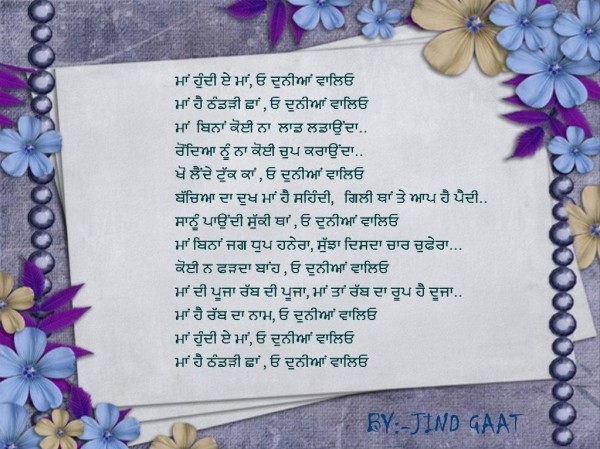 ਮਾਂ ਹੁੰਦੀ ਏ ਮਾਂ, ਓ ਦੁਨੀਆਂ ਵਾਲਿਓ
ਮਾਂ ਹੈ ਠੰਡੜੀ ਛਾਂ , ਓ ਦੁਨੀਆਂ ਵਾਲਿਓ
ਮਾਂ ਬਿਨਾਂ ਕੋਈ ਨਾ ਲਾਡ ਲਡਾਉਂਦਾ..
ਰੋਂਦਿਆ ਨੂੰ ਨਾ ਕੋਈ ਚੁਪ ਕਰਾਉਂਦਾ..
ਖੋ ਲੈਂਦੇ ਟੁੱਕ ਕਾਂ , ਓ ਦੁਨੀਆਂ ਵਾਲਿਓ
ਬੱਚਿਆ ਦਾ ਦੁਖ ਮਾਂ ਹੈ ਸਹਿੰਦੀ, ਗਿਲੀ ਥਾਂ ਤੇ ਆਪ ਹੈ ਪੈਦੀ..
ਸਾਨੂੰ ਪਾਉਂਦੀ ਸੁੱਕੀ ਥਾਂ , ਓ ਦੁਨੀਆਂ ਵਾਲਿਓ
ਮਾਂ ਬਿਨਾਂ ਜਗ ਧੁਪ ਹਨੇਰਾ, ਸੁੱਝਾ ਦਿਸਦਾ ਚਾਰ ਚੁਫੇਰਾ...
ਕੋਈ ਨ ਫੜਦਾ ਬਾਂਹ , ਓ ਦੁਨੀਆਂ ਵਾਲਿਓ
ਮਾਂ ਦੀ ਪੂਜਾ ਰੱਬ ਦੀ ਪੂਜਾ, ਮਾਂ ਤਾਂ ਰੱਬ ਦਾ ਰੂਪ ਹੈ ਦੂਜਾ..
ਮਾਂ ਹੈ ਰੱਬ ਦਾ ਨਾਮ, ਓ ਦੁਨੀਆਂ ਵਾਲਿਓ
ਮਾਂ ਹੁੰਦੀ ਏ ਮਾਂ, ਓ ਦੁਨੀਆਂ ਵਾਲਿਓ
ਮਾਂ ਹੈ ਠੰਡੜੀ ਛਾਂ , ਓ ਦੁਨੀਆਂ ਵਾਲਿਓ
BY:-JIND GAAT